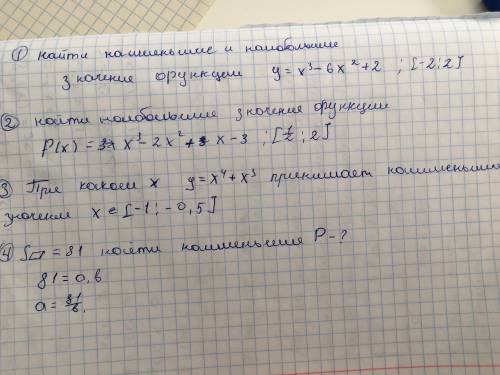 ① Найти наименьшее и наибольшее
значение функции y = x³ - 6x² + 2 ; [-2; 2]
② Найти наибольшее значение функции
f(x) = x³ - 2x² + x - 3 ; [1/2 ; 2]
③ При каком x y = x⁴ + x³ принимает наименьшее
значение x ∈ [-1 ; -0,5]
④ S▱ = 81 найти наименьшее P - ?
81 = a, b
a = 81/b,